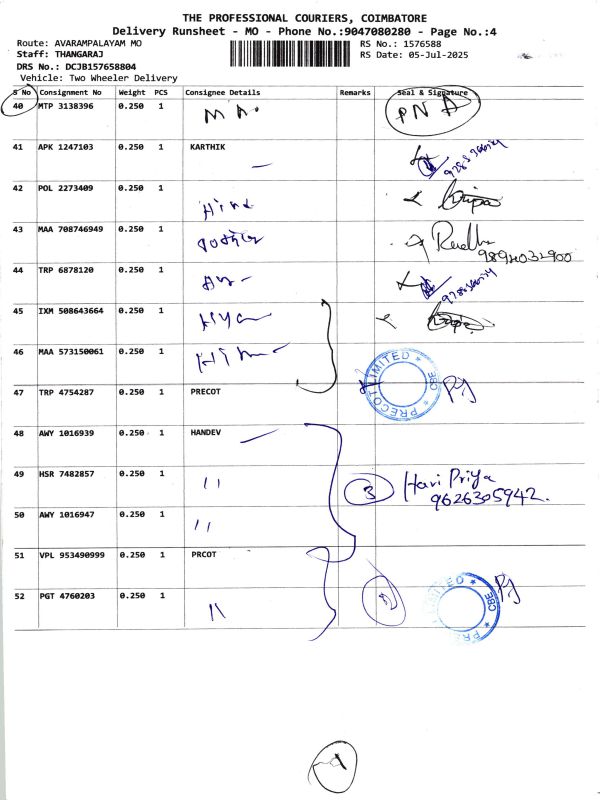 THE PROFESSIONAL COURIERS, COIMBATORE
Delivery Runsheet - MO - Phone No.:9047080280 - Page No.:4
Route: AVARAMPALAYAM MO
RS No.: 1576588
Staff: THANGARAJ
RS Date: 05-Jul-2025
DRS No.: DCJB157658804
Vehicle: Two Wheeler Delivery
S No Consignment No Weight PCS Consignee Details Remarks Seal & Signature
40 MTP 3138396 0.250 1 PNA
41 APK 1247103 0.250 1 KARTHIK
42 POL 2273409 0.250 1
43 MAA 708746949 0.250 1
9894032900
44 TRP 6878120 0.250 1
45 IXM 508643664 0.250 1
46 MAA 573150061 0.250 1
47 TRP 4754287 0.250 1 PRECOT PRECOT LIMITED CBE
48 AWY 1016939 0.250 1 HANDEV
49 HSR 7482857 0.250 1 " 3 Hari Priya
9626305942.
50 AWY 1016947 0.250 1 "
51 VPL 953490999 0.250 1 PRCOT
52 PGT 4760203 0.250 1 "